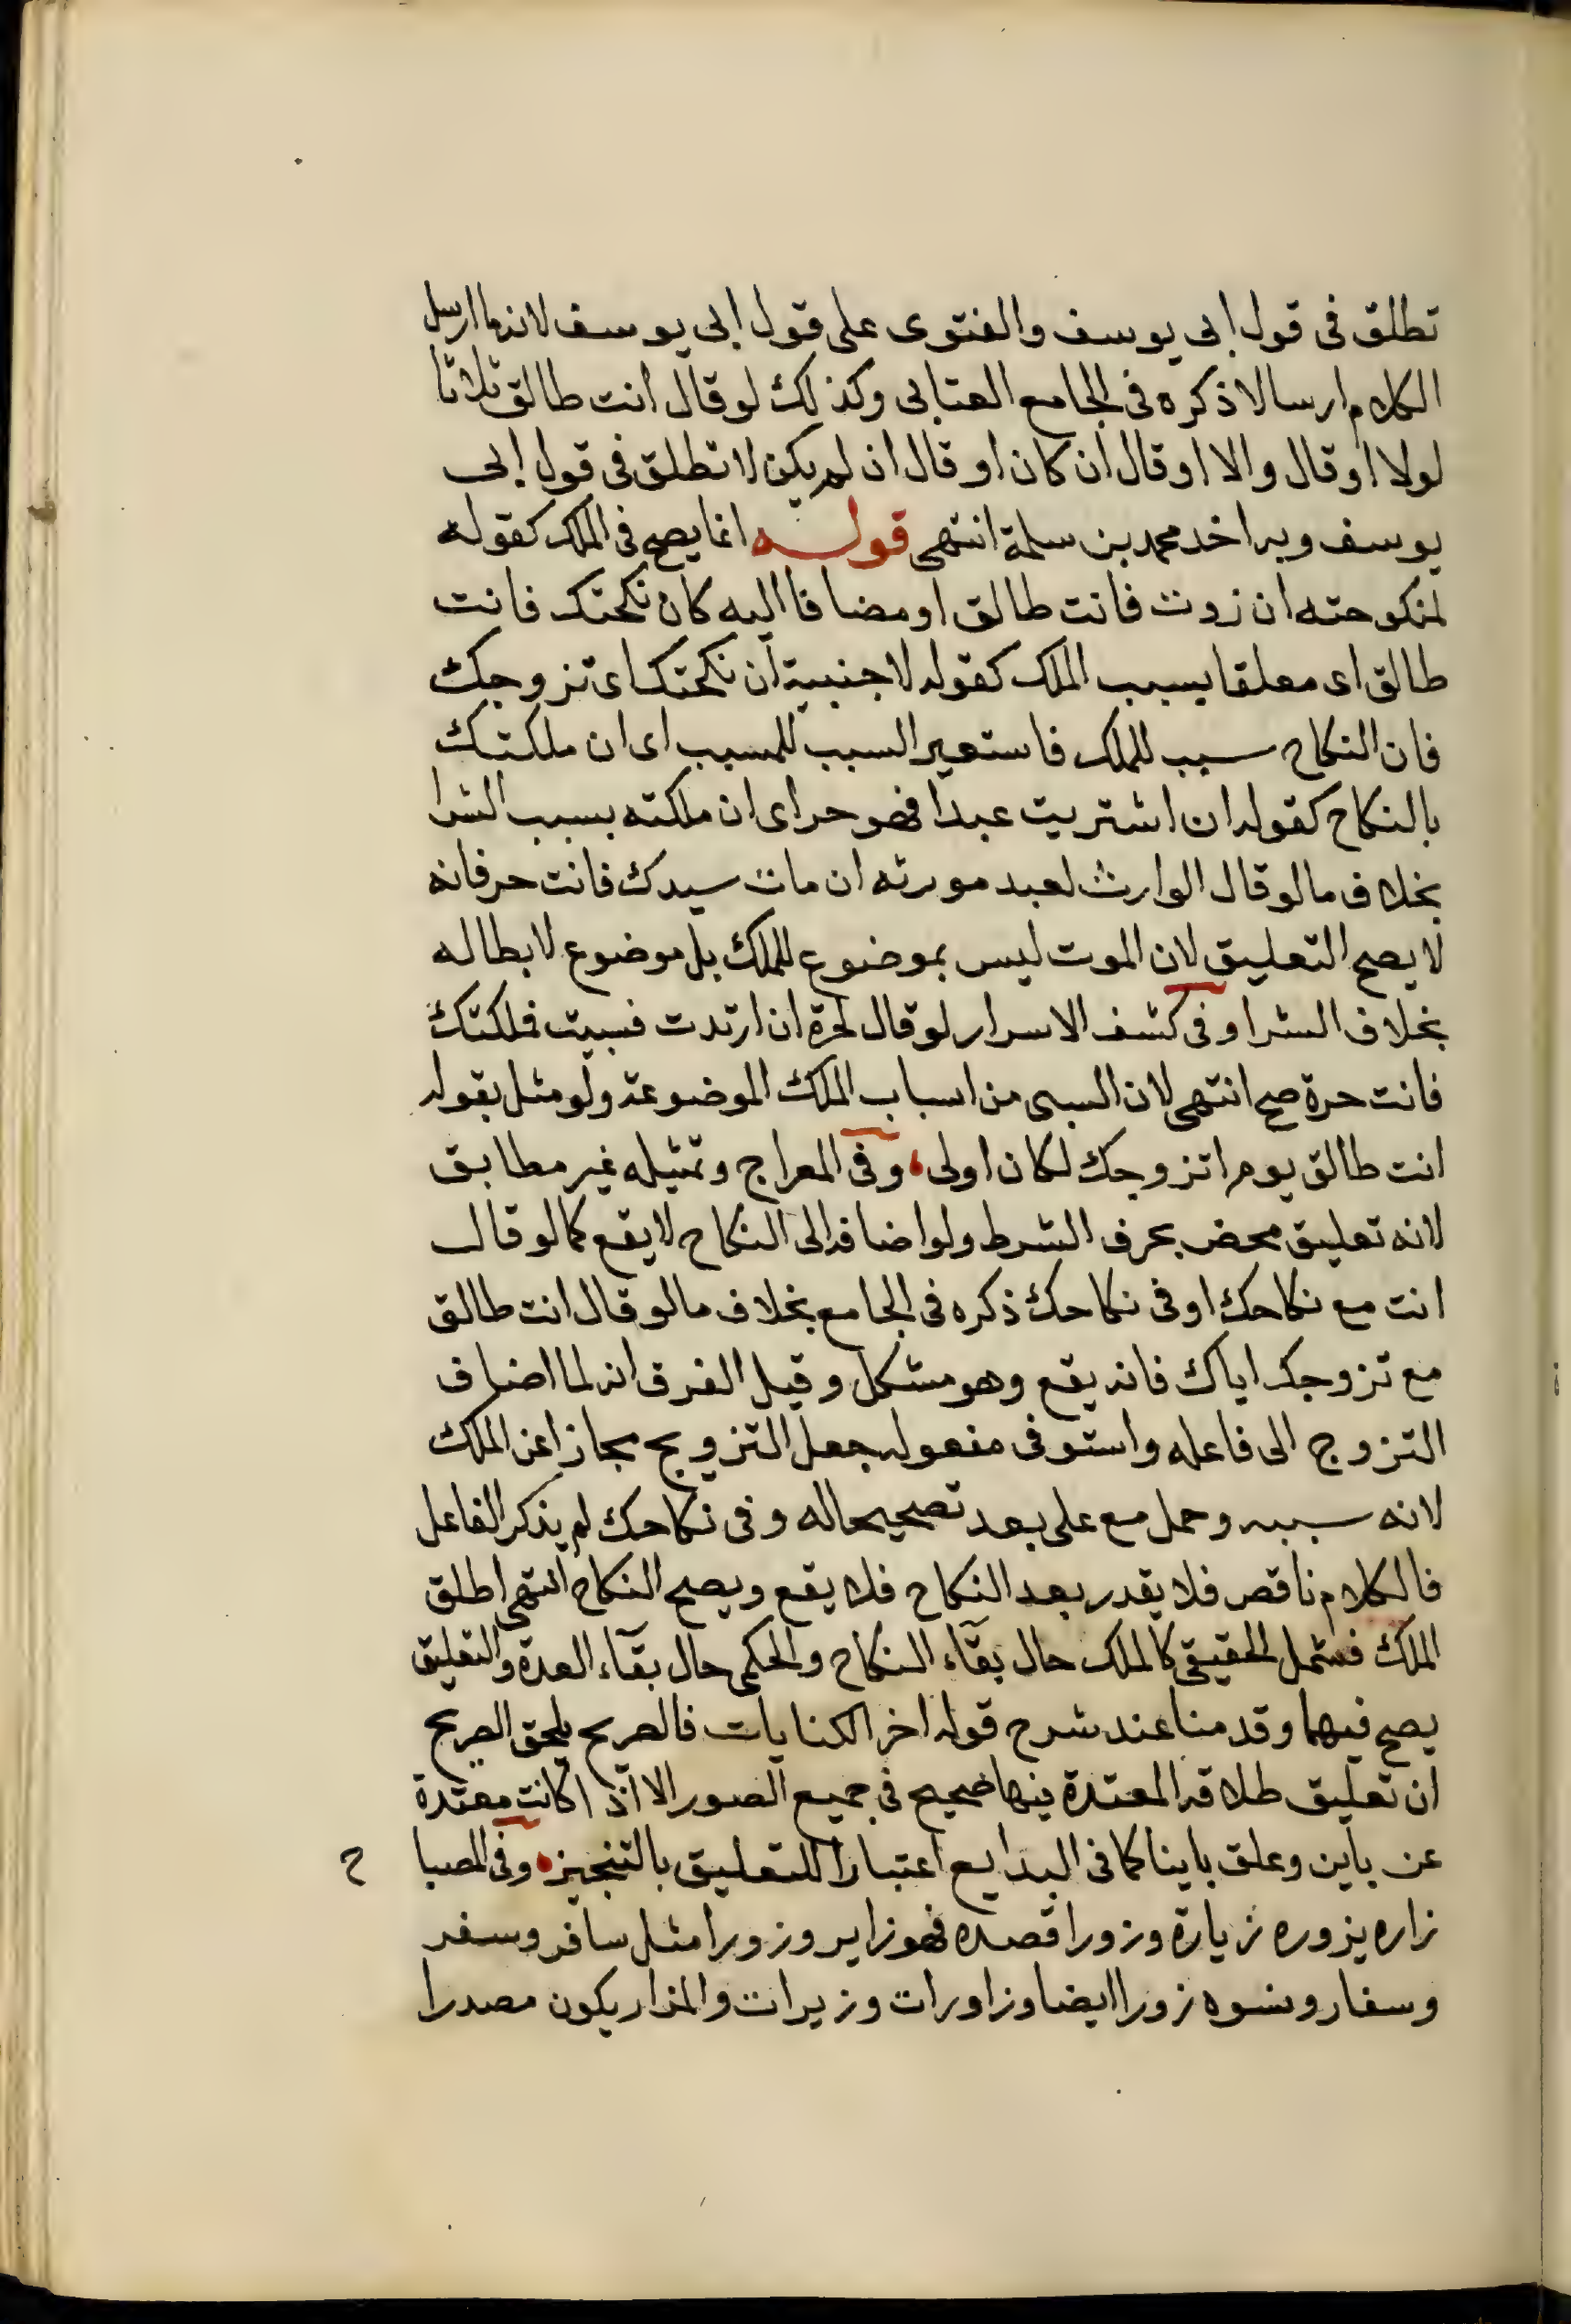 تطلق فى قول ابى يوسف والفتوى على قول ابى يوسف لانه ما ارسل
الكلام ارسالا ذكره فى الجامع العتابى وكذلك لو قال انت طالق ثلاثا
لولا او قال والا او قال ان كان او قال ان لم يكن لا تطلق فى قول ابى
يوسف وبه اخد محمد بن سلمة انتهى قوله انما يصح فى الملك كقوله
لمنكوحته ان زرت فانت طالق او مضافا اليه كان نكحتك فانت
طالق اى معلقا بسبب الملك كقوله لاجنبية ان نكحتك اى تزوجك
فان النكاح سبب للملك فاستعير السبب للمسبب اى ان ملكتك
بالنكاح كقوله ان اشتريت عبدا فهو حر اى ان ملكته بسبب الشرا
بخلاف ما لو قال الوارث لعبد مورثه ان مات سيدك فانت حر فانه
لا يصح التعليق لان الموت ليس بموضوع للملك بل موضوع لابطاله
بخلاف الشرا وفى كشف الاسرار لو قال لحرة ان ارتدت فسبيت فملكتك
فانت حرة صح انتهى لان السبى من اسباب الملك الموضوعة ولو مثل بقوله
انت طالق يوم اتزوجك لكان اولى وفى المعراج وتمثيله غير مطابق
لانه تعليق محض بحرف الشرط ولو اضافه الى النكاح لا يقع كما لو قال
انت مع نكاحك او فى نكاحك ذكره فى الجامع بخلاف ما لو قال انت طالق
مع تزوجك اياك فانه يقع وهو مشكل وقيل الفرق انه لما اضاف
التزوج الى فاعله واستوفى مفعوله جعل التزويج مجازا عن الملك
لانه سببه وحمل مع على بعد تصحيحا له وفى نكاحك لم يذكر الفاعل
فالكلام ناقص فلا يقدر بعد النكاح فلا يقع ويصح النكاح انتهى اطلق
الملك فشمل الحقيقى كالملك حال بقآء النكاح والحكمى حال بقآء العدة والتعليق
يصح فيهما وقدمنا عند شرح قوله اخر الكنايات فالصريح يلحق الصريح
ان تعليق طلاقه المعتدة فيها صحيح فى جميع الصور الا اذا كانت معتدة
عن باين وعلق باينا كما فى البدايع اعتبارا للتعليق بالتنجيز وفى المصبا ح
زاره يزوره زيارة وزورا قصده فهو زاير وزورا مثل سافر وسفر
وسفار ونسوه زورا ايضا وزاورات وزيرات والمزار يكون مصدرا